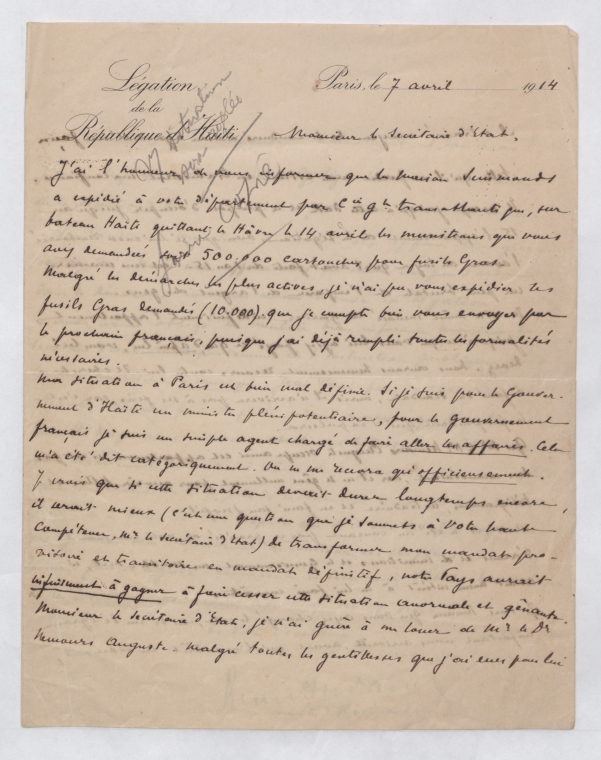 Légation
de la
République d'Haïti
Paris, le 7 avril 1914
Monsieur le Secrétaire d'Etat,
J'ai l'honneur de vous informer que la maison
a expédié à votre département par Cie Gle transatlantique, sur
bateau Haïti quittant le Hâvre le 14 avril les munitions que vous
avez demandées soit 500.000 cartouches pour fusils Gras.
Malgré les démarches les plus actives, je n'ai pu vous expédier les
fusils Gras demandés (10.000) que je compte bien vous envoyer par
le prochain français, puisque j'ai déjà rempli toutes les formalités
nécessaires.
Ma situation à Paris est bien mal définie. Si je suis pour le Gouver-
nement d'Haïti un ministre plénipotentiaire, pour le gouvernement
français je suis un simple agent chargé de faire aller les affaires. Cela
m'a été dit catégoriquement. On ne me recevra qu'officieusement.
Je crois que si cette situation devait durer longtemps encore,
il serait mieux (c'est une question que je soumets à votre haute
compétence, Mr. le Secrétaire d'Etat) de transformer mon mandat pro-
visoire et transitoire en mandat définitif, notre Pays aurait
infiniment à gagner à faire cesser cette situation anormale et gênante.
Monsieur le Secrétaire d'Etat, je n'ai guère à me louer de Mr. le Dr
Nemours Auguste malgré toutes les gentillesses que j'ai eues pour lui